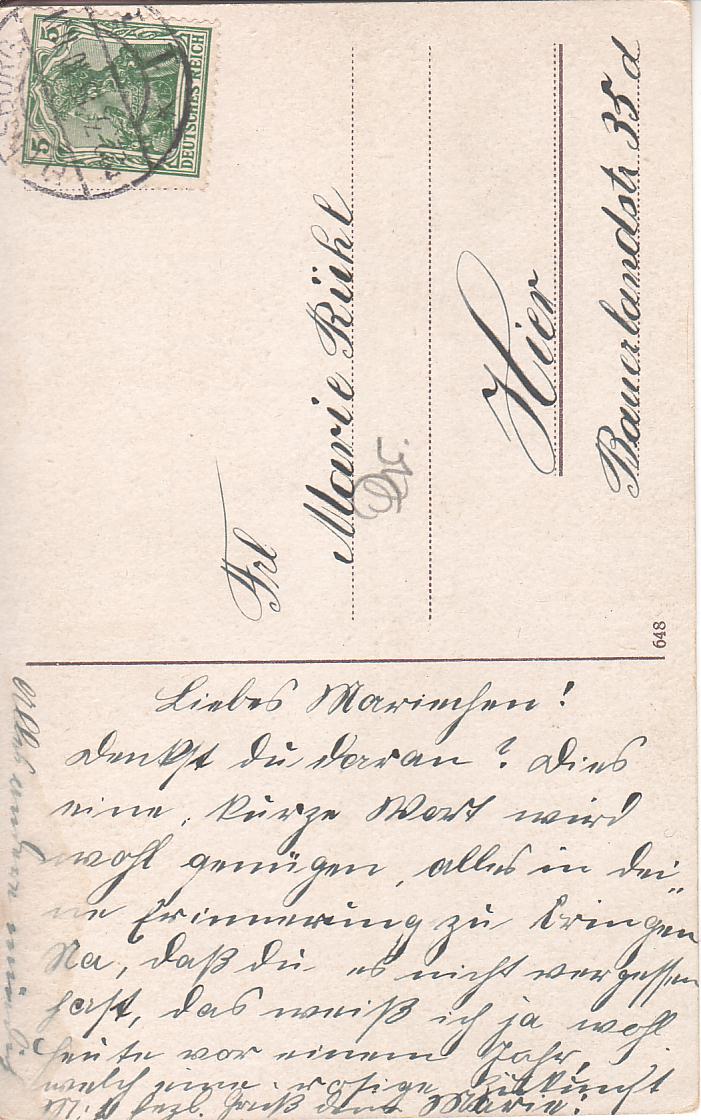 5
5
DEUTSCHES REICH
Frl
Marie Rühl
Hier
Bauerlandstr. 35 d
648
Liebes Mariechen!
Denkst du daran? Dies
eine, kurze Wort wird
wohl genügen, alles in dei-
ne Erinnerung zu bringen
Na, daß du es nicht vergessen
hast, das weiß ich ja wohl
heute vor einem Jahr,
welch eine rosige Zukunft
herzl. Gruß Marie!
Alles andere mündlich